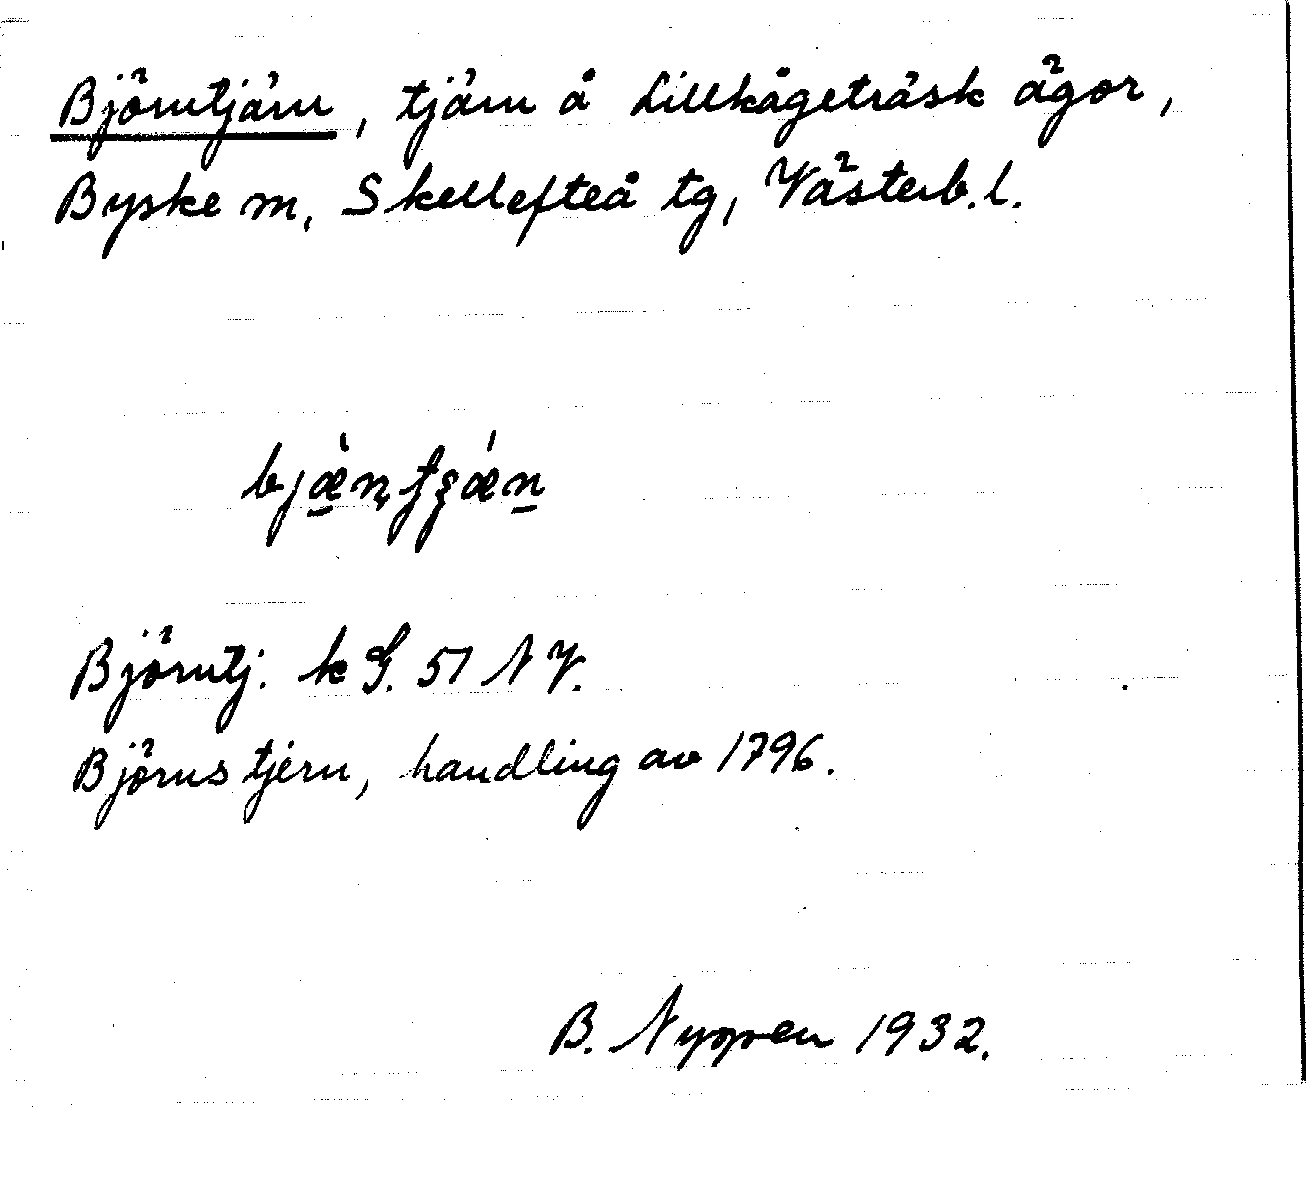 Björntjärn, tjärn å Lillkågeträsk ägor,
Byske sn, Skellefteå tg, Västerb. l.
Björntj. k G. 51 N V.
Björns tjern, handling av 1796.
B. 1932.